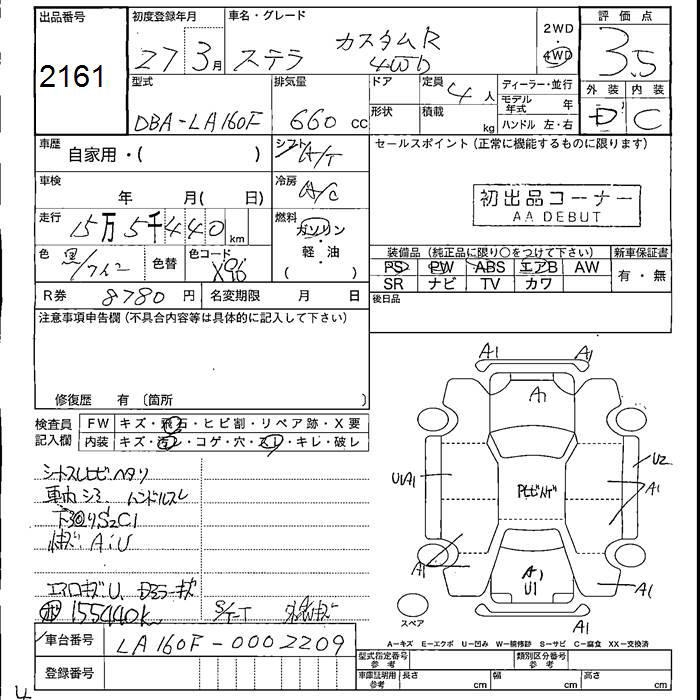 出品番号
2161
初度登録年月
27 3月
車名・グレード
ステラ カスタムR 4WD
2WD
4WD
評価点
3.5
外装 内装
D C
型式
DBA-LA160F
排気量
660 cc
ドア
形状
定員
4人
積載
kg
ディーラー・並行
モデル年式 年
ハンドル 左・右
車歴
自家用・( )
シフト
A/T
セールスポイント(正常に機能するものに限ります)
初出品コーナー
AA DEBUT
車検
年 月( 日)
冷房
A/C
走行
15万5千440 km
燃料
ガソリン・軽・油
( )
色
黒/ワイン
色替
色コード
X96
装備品(純正品に限り○をつけて下さい)
PS PW ABS エアB AW
SR ナビ TV カワ
新車保証書
有・無
R券 8780円
名変期限 月 日
後日品
注意事項申告欄(不具合内容等は具体的に記入して下さい)
修復歴 有 〔箇所 〕
検査員記入欄
FW キズ・飛石・ヒビ割・リペア跡・X要
内装 キズ・汚レ・コゲ・穴・スレ・キレ・破レ
車内シミ ハンドルスレ
下回りS2C1
A1U
エアロキズU、
155440k
A1
A1
A1
UA1
U2
A1
A1
A1
U1
A1
A1
スペア
A-キズ E-エクボ U-凹み W-補修跡 S-サビ C-腐食 XX-交換済
車台番号
LA160F-0002209
登録番号
型式指定番号 参考
類別区分番号 参考
車庫証明用 参考
長さ cm
幅 cm
高さ cm